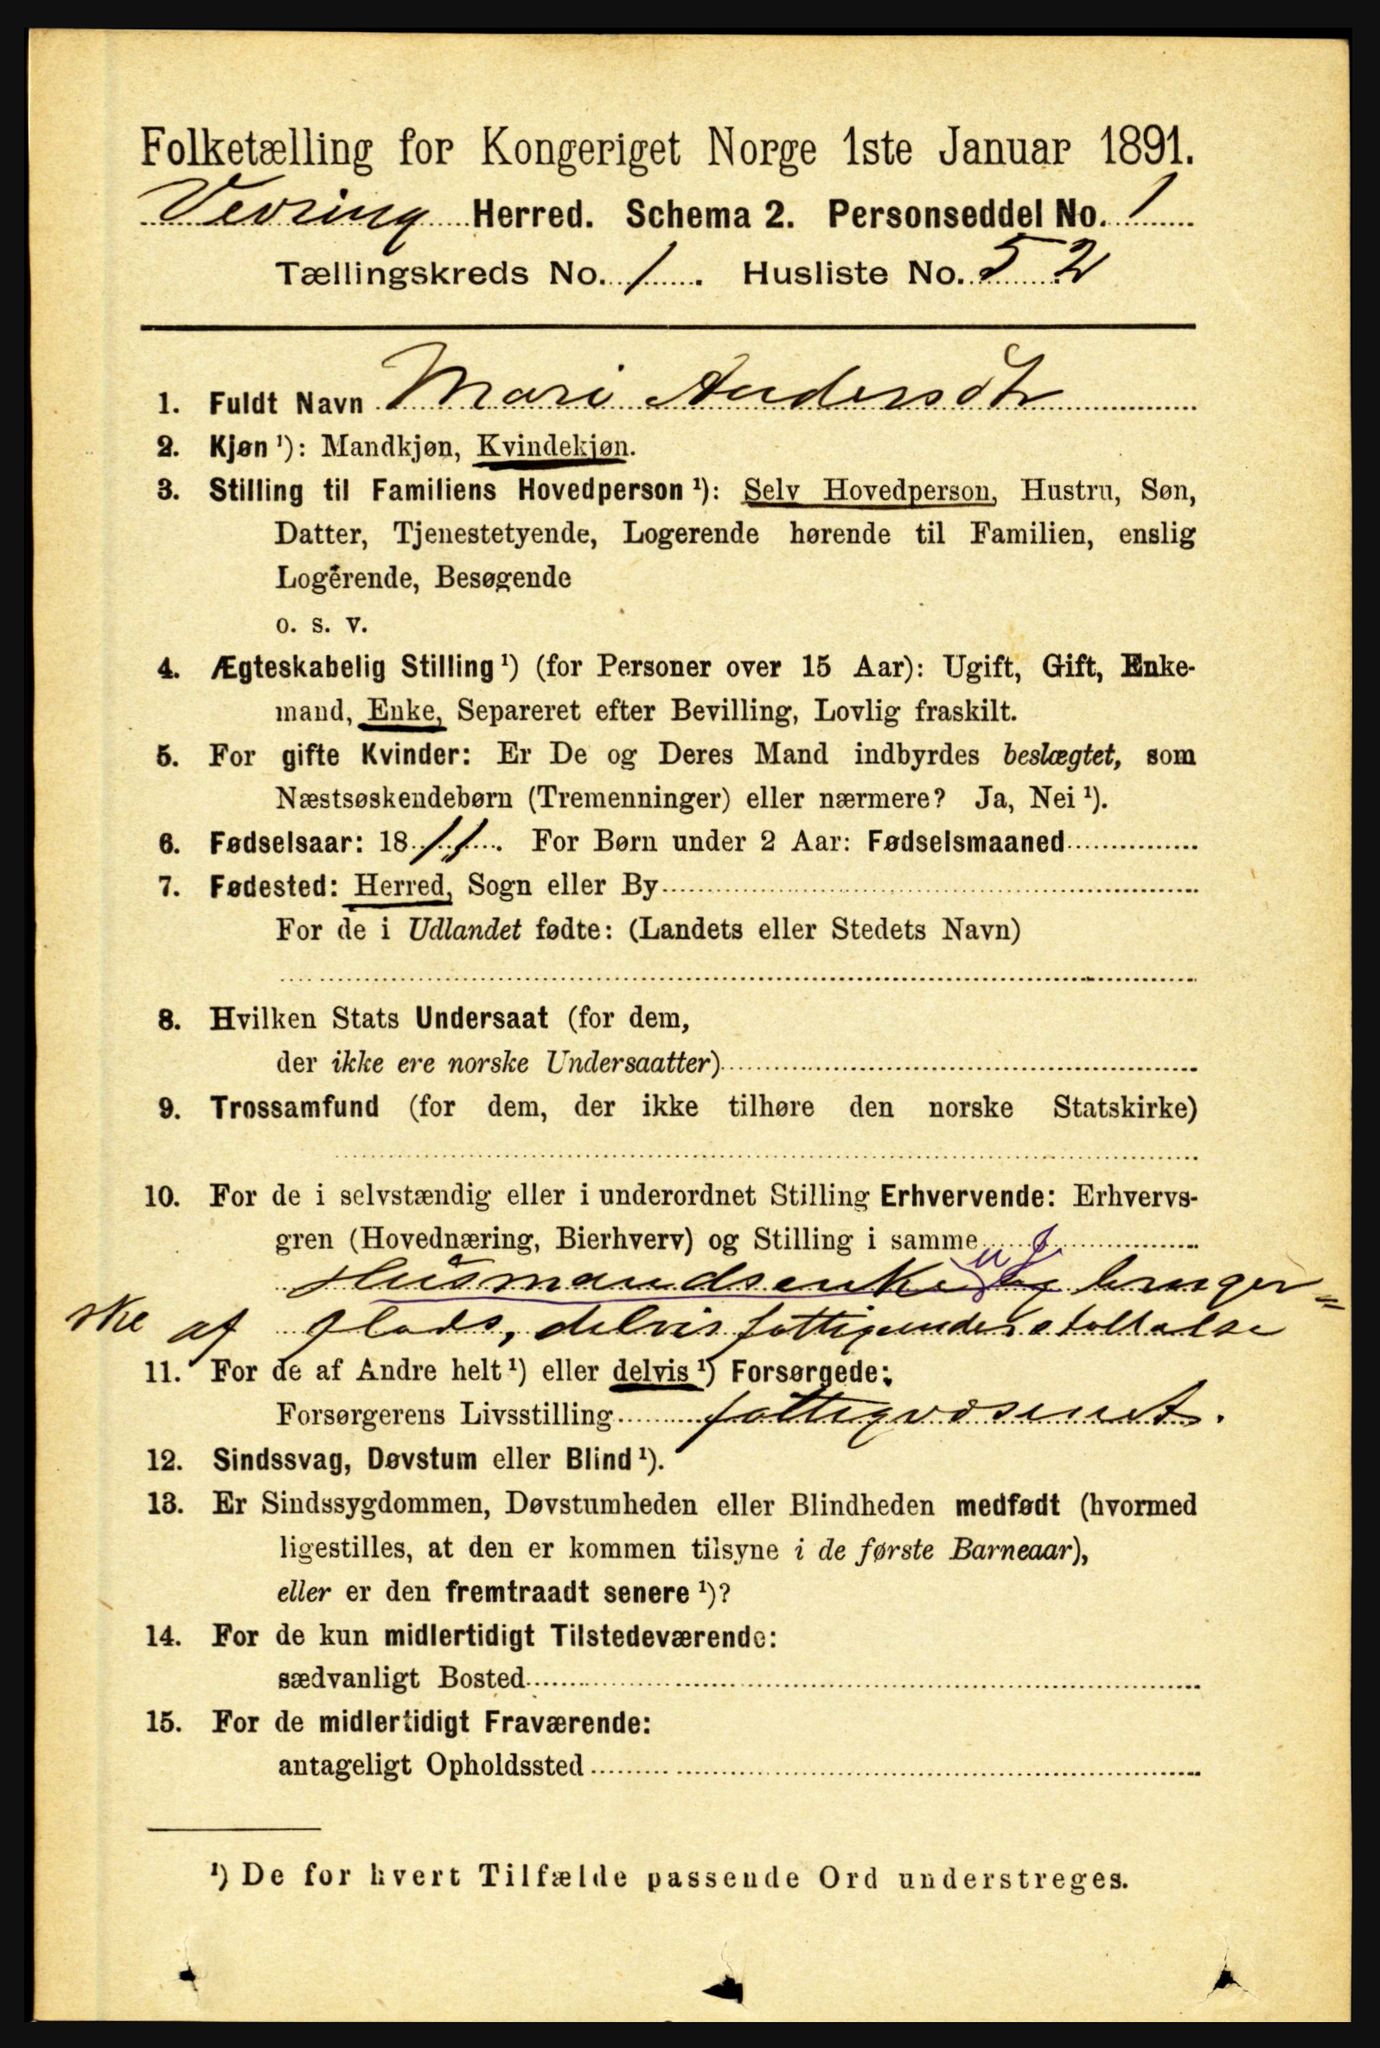 Folketælling for Kongeriget Norge 1ste Januar 1891.
Vevring Herred. Schema 2. Personseddel No. 1
Tællingskreds No. 1. Husliste No. 52
1. Fuldt Navn Mari Andersdtr
2. Kjøn ¹): Mandkjøn, Kvindekjøn.
3. Stilling til Familiens Hovedperson ¹): Selv Hovedperson, Hustru, Søn,
Datter, Tjenestetyende, Logerende hørende til Familien, enslig
Logerende, Besøgende
o. s. v.
4. Ægteskabelig Stilling ¹) (for Personer over 15 Aar): Ugift, Gift, Enke-
mand, Enke, Separeret efter Bevilling, Lovlig fraskilt.
5. For gifte Kvinder: Er De og Deres Mand indbyrdes beslægtet, som
Næstsøskendebørn (Tremenninger) eller nærmere? Ja, Nei ¹).
6. Fødselsaar: 1811. For Børn under 2 Aar: Fødselsmaaned
7. Fødested: Herred, Sogn eller By
For de i Udlandet fødte: (Landets eller Stedets Navn)
8. Hvilken Stats Undersaat (for dem,
der ikke ere norske Undersaatter)
9. Trossamfund (for dem, der ikke tilhøre den norske Statskirke)
10. For de i selvstændig eller i underordnet Stilling Erhvervende: Erhvervs-
gren (Hovednæring, Bierhverv) og Stilling i samme
Husmandsenke og bruger=
ske af Plads, delvis fattigunderstøttelse
11. For de af Andre helt ¹) eller delvis ¹) Forsørgede:
Forsørgerens Livsstilling fattigvæsenet.
12. Sindssvag, Døvstum eller Blind ¹).
13. Er Sindssygdommen, Døvstumheden eller Blindheden medfødt (hvormed
ligestilles, at den er kommen tilsyne i de første Barneaar),
eller er den fremtraadt senere ¹)?
14. For de kun midlertidigt Tilstedeværende:
sædvanligt Bosted
15. For de midlertidigt Fraværende:
antageligt Opholdssted
¹) De for hvert Tilfælde passende Ord understreges.